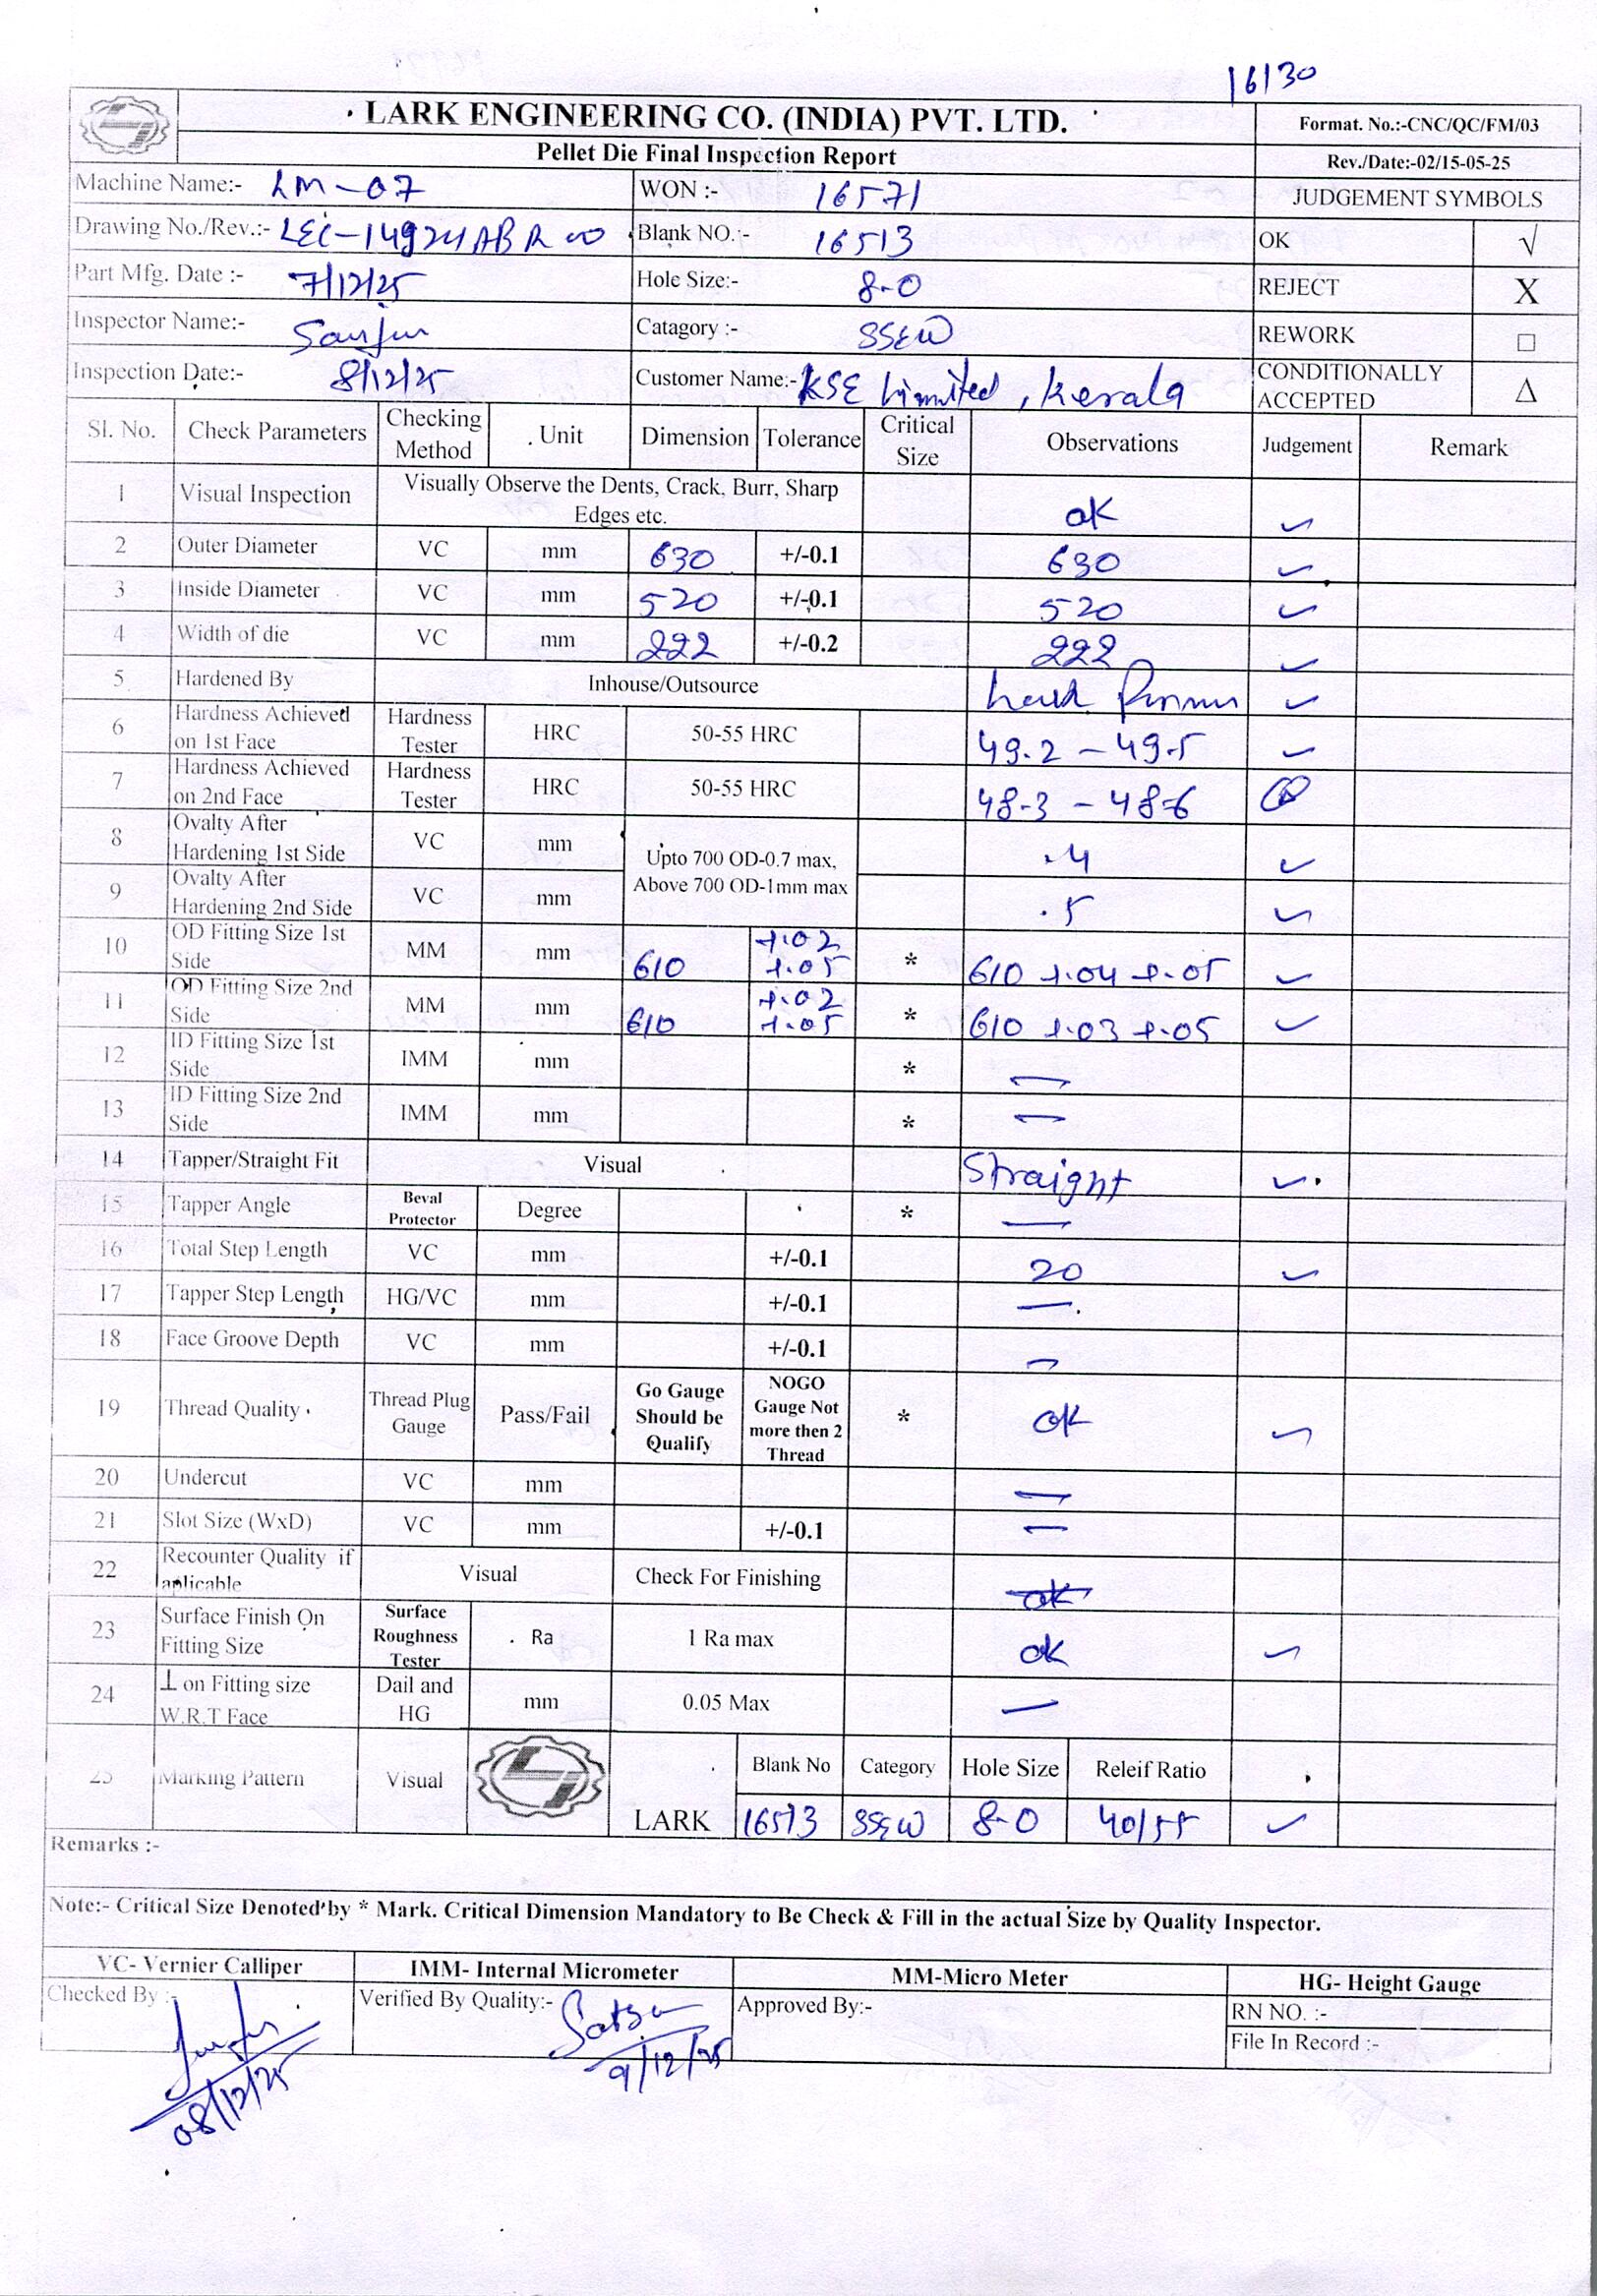 16130
LARK ENGINEERING CO. (INDIA) PVT. LTD.
Format. No.:-CNC/QC/FM/03
Pellet Die Final Inspection Report
Rev./Date:-02/15-05-25
Machine Name:- LM-07 WON :- 16571 JUDGEMENT SYMBOLS
Drawing No./Rev.:- LEC-14924ABR00 Blank NO.:- 16513 OK √
Part Mfg. Date :- 7/12/25 Hole Size:- 8.0 REJECT X
Inspector Name:- Catagory :- SS&W REWORK □
Inspection Date:- 8/12/25 Customer Name:- KSE Limited, Kerala CONDITIONALLY ACCEPTED Δ
Sl. No. Check Parameters Checking Method Unit Dimension Tolerance Critical Size Observations Judgement Remark
1 Visual Inspection Visually Observe the Dents, Crack, Burr, Sharp Edges etc. ok ✓
2 Outer Diameter VC mm 630 +/-0.1 630 ✓
3 Inside Diameter VC mm 520 +/-0.1 520 ✓
4 Width of die VC mm 222 +/-0.2 222 ✓
5 Hardened By Inhouse/Outsource ✓
6 Hardness Achieved on 1st Face Hardness Tester HRC 50-55 HRC 49.2 - 49.5 ✓
7 Hardness Achieved on 2nd Face Hardness Tester HRC 50-55 HRC 48.3 - 48.6
8 Ovalty After Hardening 1st Side VC mm Upto 700 OD-0.7 max, Above 700 OD-1mm max .4 ✓
9 Ovalty After Hardening 2nd Side VC mm .5 ✓
10 OD Fitting Size 1st Side MM mm 610 +.02 +.05 * 610 +.04 +.05 ✓
11 OD Fitting Size 2nd Side MM mm 610 +.02 +.05 * 610 +.03 +.05 ✓
12 ID Fitting Size 1st Side IMM mm * —
13 ID Fitting Size 2nd Side IMM mm * —
14 Tapper/Straight Fit Visual Straight ✓
15 Tapper Angle Beval Protector Degree * —
16 Total Step Length VC mm +/-0.1 20 ✓
17 Tapper Step Length HG/VC mm +/-0.1 —
18 Face Groove Depth VC mm +/-0.1 —
19 Thread Quality Thread Plug Gauge Pass/Fail Go Gauge Should be Qualify NOGO Gauge Not more then 2 Thread * ok ✓
20 Undercut VC mm —
21 Slot Size (WxD) VC mm +/-0.1 —
22 Recounter Quality if aplicable Visual Check For Finishing ok
23 Surface Finish On Fitting Size Surface Roughness Tester Ra 1 Ra max ok ✓
24 ⊥ on Fitting size W.R.T Face Dail and HG mm 0.05 Max —
25 Marking Pattern Visual LARK Blank No Category Hole Size Releif Ratio
16513 SS&W 8.0 40/55 ✓
Remarks :-
Note:- Critical Size Denoted by * Mark. Critical Dimension Mandatory to Be Check & Fill in the actual Size by Quality Inspector.
VC- Vernier Calliper IMM- Internal Micrometer MM-Micro Meter HG- Height Gauge
Checked By :- Verified By Quality:- Approved By:- RN NO. :-
File In Record :-
9/12/25
08/12/25